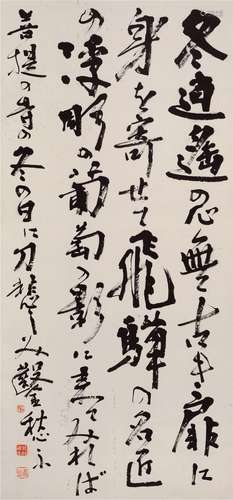 冬逍遥の無く古き扉に
身を寄せて飛騨の名匠
の浮彫の葡萄の影に来てみれば
菩提の寺の冬の日に刀悲しみ鑿愁ふ